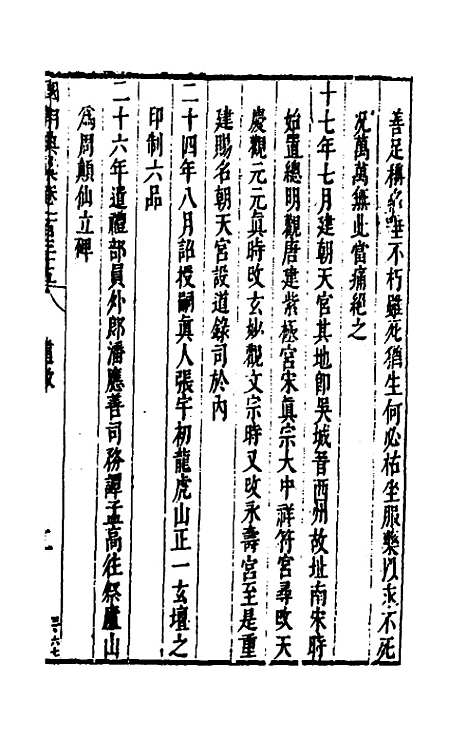 善足稱名垂不朽雖死猶生何必枯坐服藥以求不死
况萬萬無此當痛絕之
十七年七月建朝天宮其地卽吳城晉西州故址南宋時
始置總明觀唐建紫極宮宋眞宗大中祥符宮尋改天
慶觀元元眞時改玄妙觀文宗時又改永壽宮至是重
建賜名朝天宮設道錄司於內
二十四年八月詔授嗣眞人張宇初龍虎山正一玄壇之
印制六品
二十六年遣禮部員外郎潘應善司務譚孟高往祭廬山
爲周顛仙立碑
國朝典彙卷一百三十五
道教
三六七